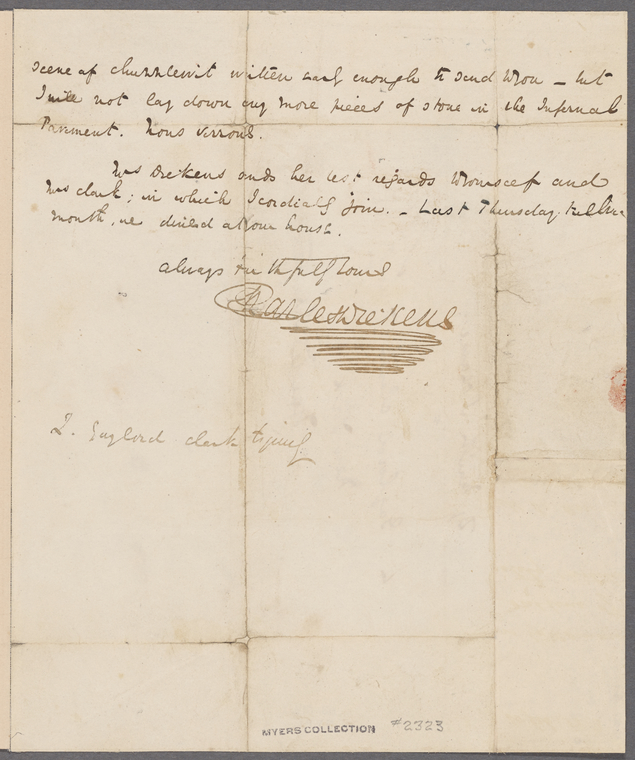 scene of Chuzzlewit written early enough to send you – but
I will not lay down any more pieces of stone in the Infernal
Pavement. Nous verrons.
Mrs Dickens sends her best regards to yourself and
Mrs Clark; in which I cordially join. – Last Thursday twelve
month, we dined at your house.
always faithfully Yours
Charles Dickens
L. Gaylord Clark Esquire
MYERS COLLECTION #2323